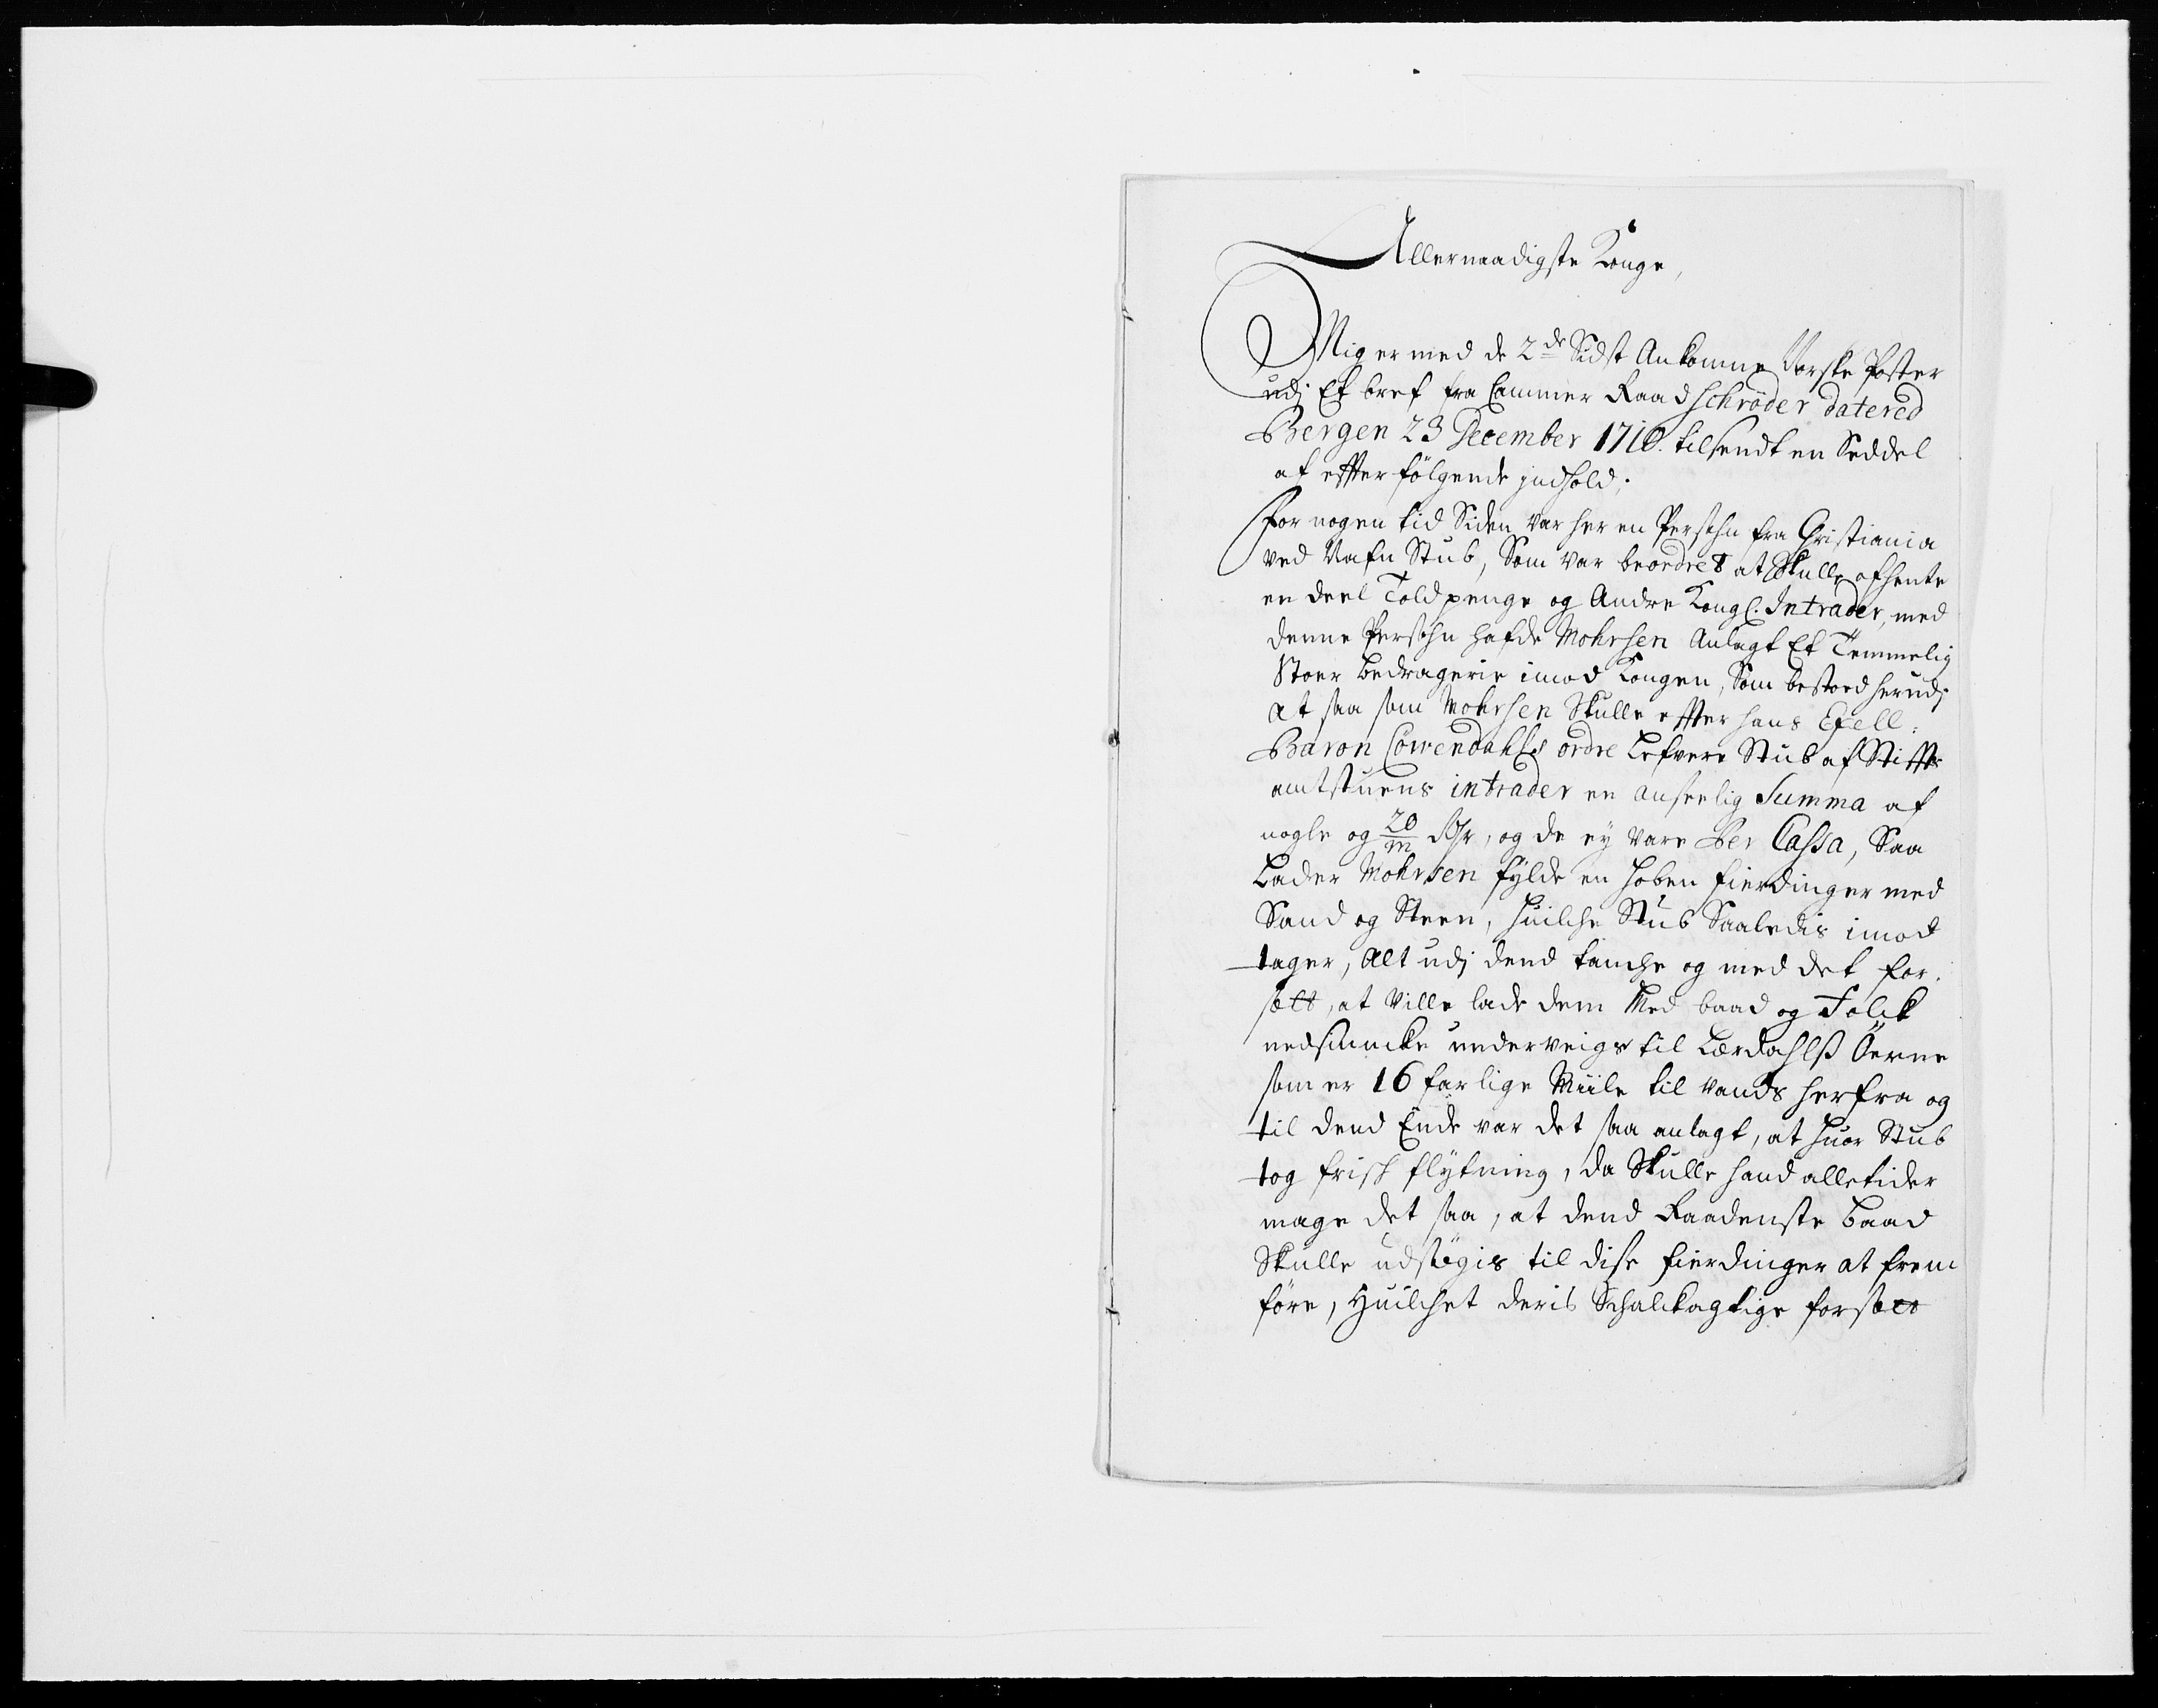 Allernaadigste Konge,
Mig er med de 2de Sidst Ankomne Norske Poster
udj Et bref fra Cammer Raad Schröder datered
Bergen 23 December 1710. tilsendt en Seddel
af effterfölgende jndhold;
For nogen tid Siden var her en Persohn fra Christiania
ved Nafn Stub, Som var beordret at Skulle afhente
en deel Toldpenge og Andre Kongl. Intrader, med
denne Persohn hafde Mohrsen Anlagt Et Temmelig
Stoer bedragerie imod Kongen, Som bestoed herudj
at saa som Mohrsen Skulle effter hans Excell:
Baron Löwendahls ordre Lefvere Stub af Stiffts
amtstuens intrader en anseelig Summa af
nogle og 20/m Rdr, og de ej vare Per Cassa, Saa
Lader Mohrsen fylde en hoben fierdinger med
Sand og Steen, huilche Stub Saaledis imod
tager, Alt udj dend tanche og med det for-
sætt, at Ville lade dem Med baad og Folck
nedsiuncke underveigs til Lærdahlß Öerne
som er 16 farlige Miile til vands herfra og
til dend Ende var det saa anlagt, at huor Stub
tog frisk flytning, da Skulle hand alletider
mage det saa, at dend Raadenste baad
Skulle udsögis til dise fierdinger at frem
före, Huilchet deris Schalckagtige forsætt